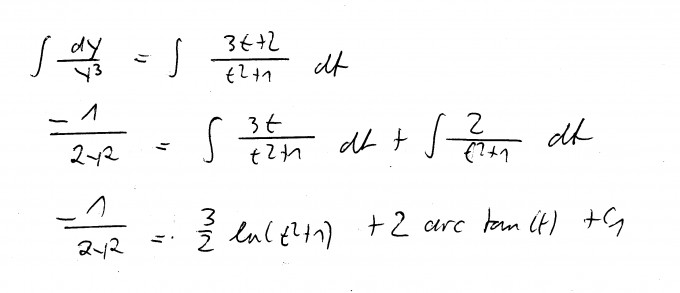 ∫ dy/y³ = ∫ (3t+2)/(t²+1) dt
-1/(2y²) = ∫ 3t/(t²+1) dt + ∫ 2/(t²+1) dt
-1/(2y²) = 3/2 ln(t²+1) + 2 arc tan(t) + C₁